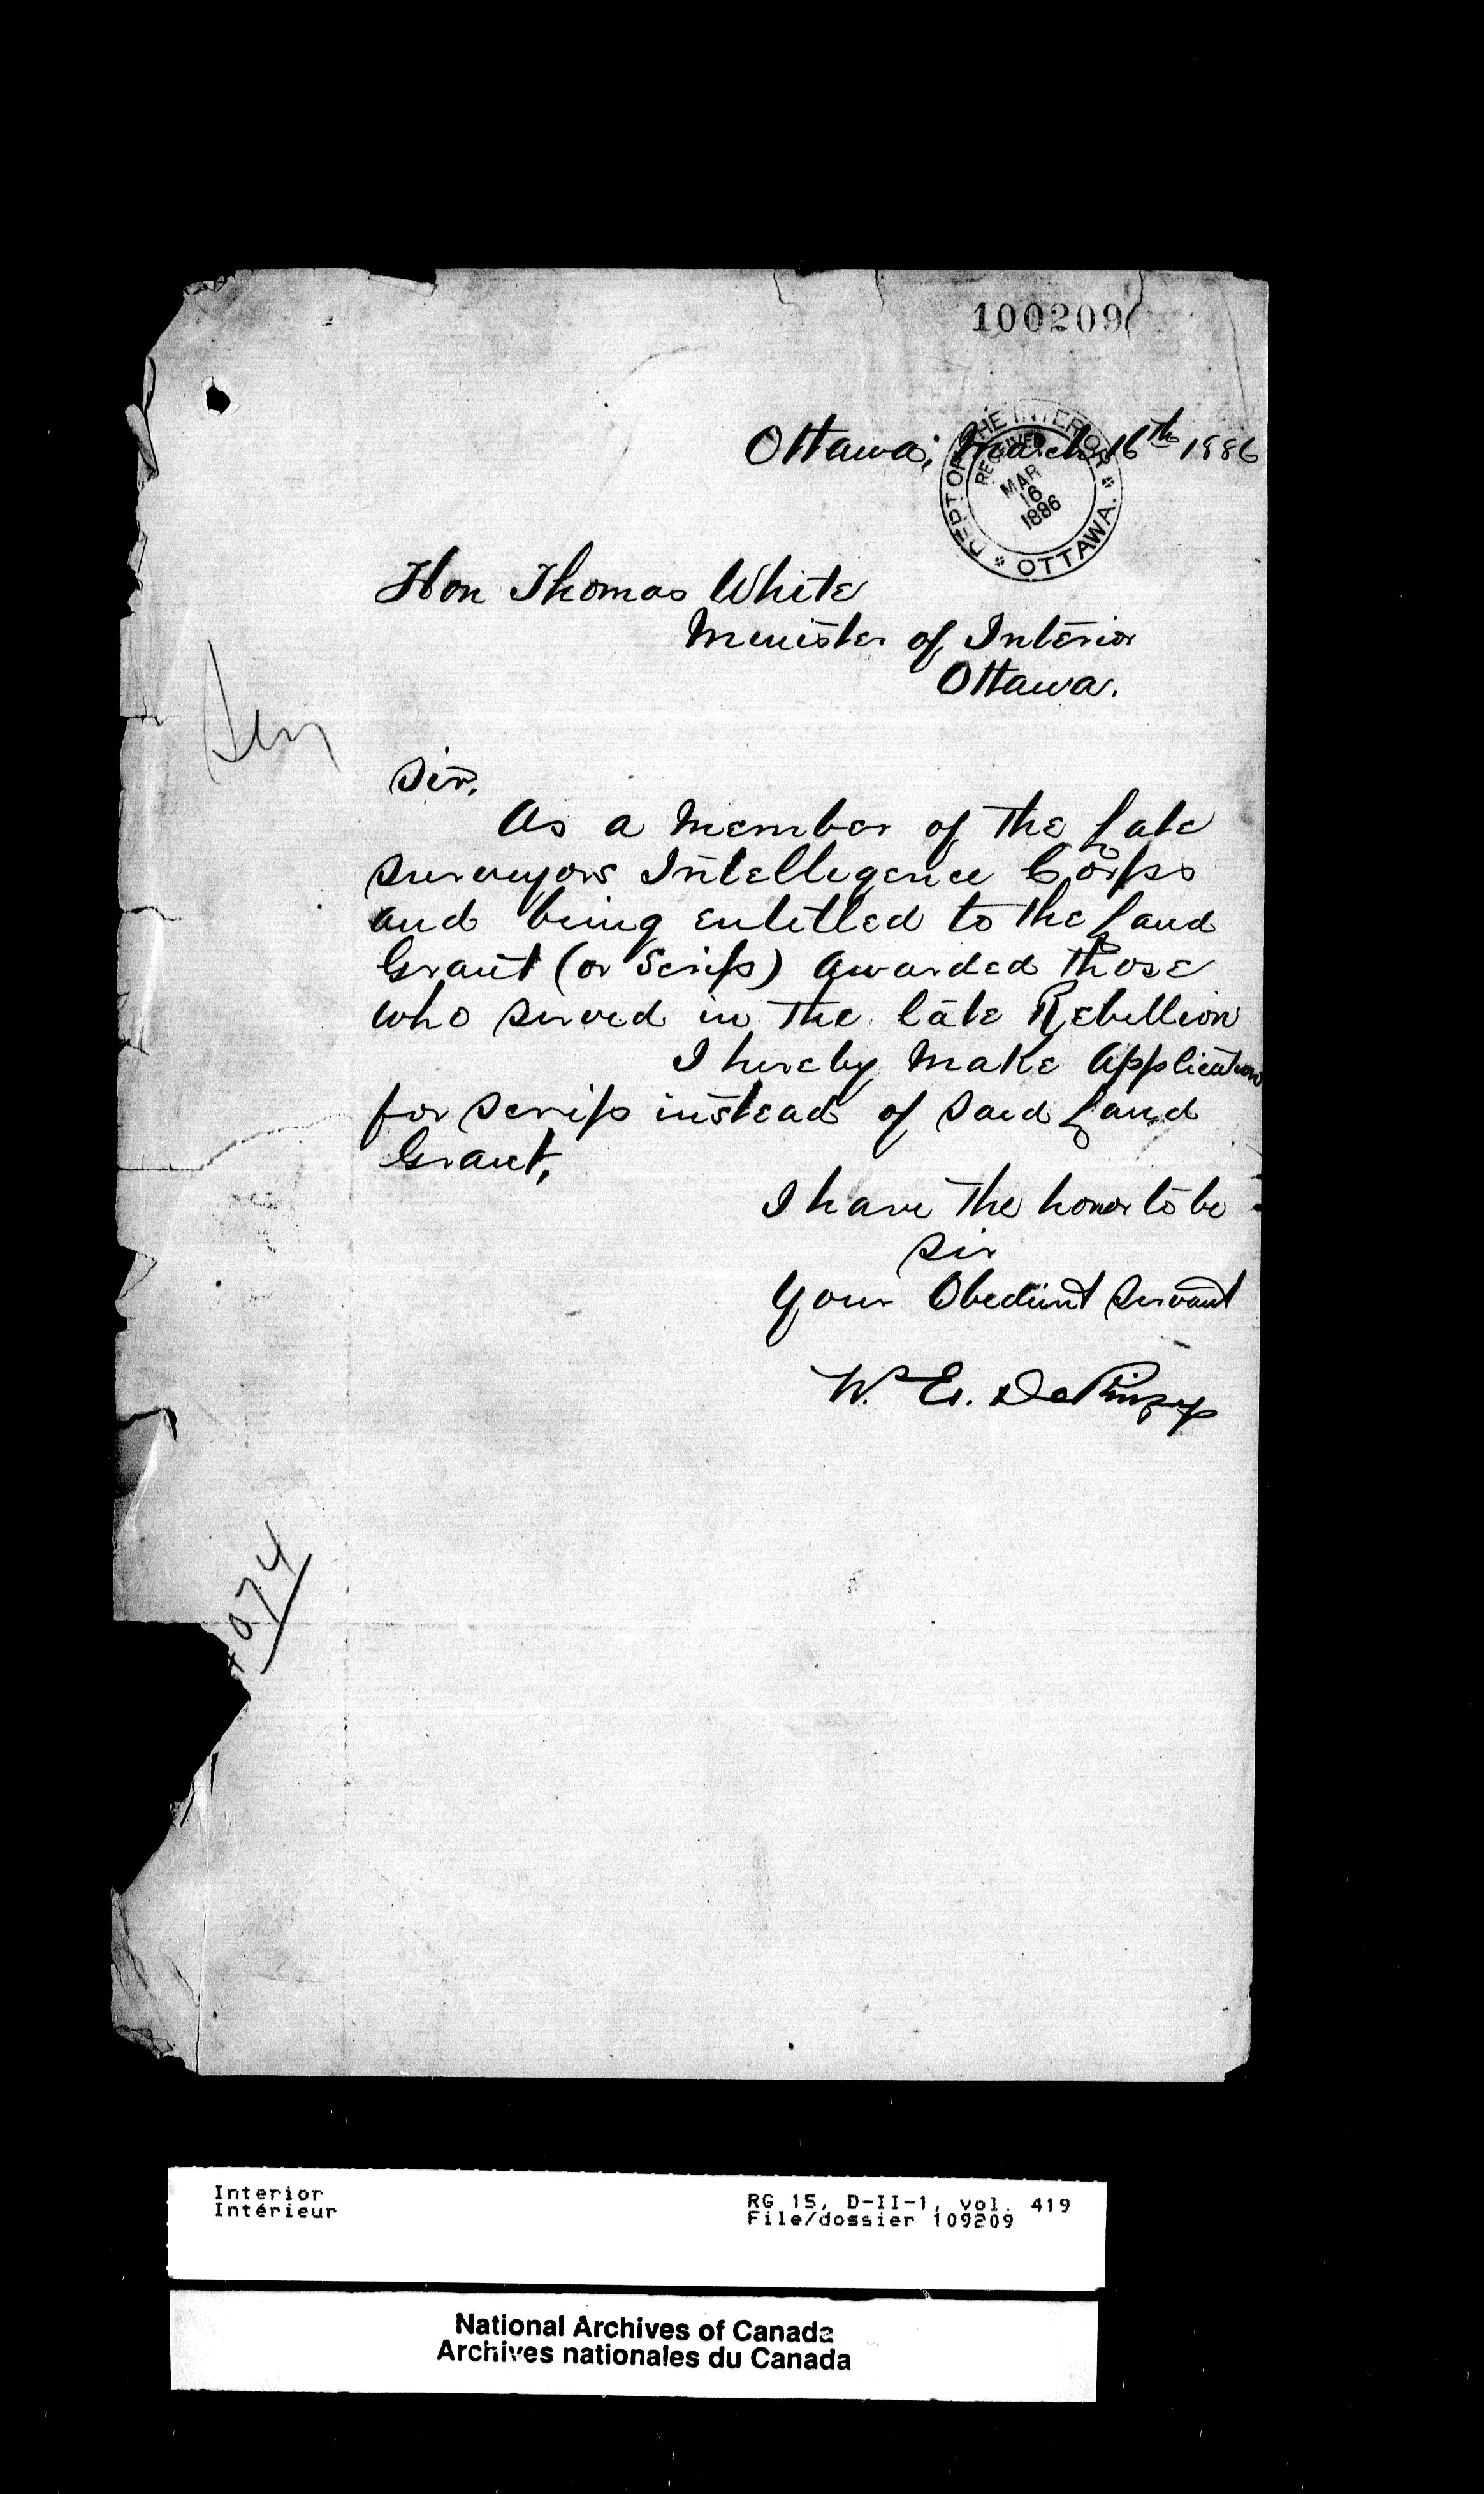 100209
Ottawa, March 16th 1886
DEPT OF THE INTERIOR * OTTAWA. *
RECEIVED
MAR
16
1886
Hon Thomas White
Minister of Interior
Ottawa.
Sir,
As a Member of the Late
Surveyors Intelligence Corps
and being entitled to the Land
Grant (or Scrip) awarded those
who served in the late Rebellion
I hereby Make Application
for scrip instead of said Land
Grant,
I have the honor to be
Sir
Your Obedient Servant
W. E.
074
Interior
Intérieur
RG 15, D-II-1, vol. 419
File/dossier 109209
National Archives of Canada
Archives nationales du Canada